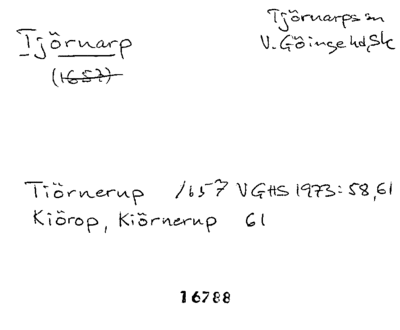 Tjörnarp
(1657)
Tjörnarps sn
V. Göinge hd, Sk
Tiörnerup 1657 VGHS 1973: 58, 61
Kiörop, Kiörnerup 61
16788